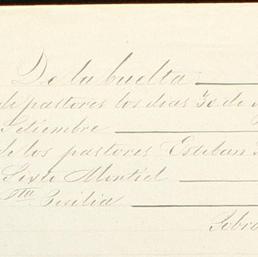 De la buelta
de pastores los dias 30 de
Setiembre
de los pastores Esteban
Sisto Montiel
Sta Cecilia
Sobra